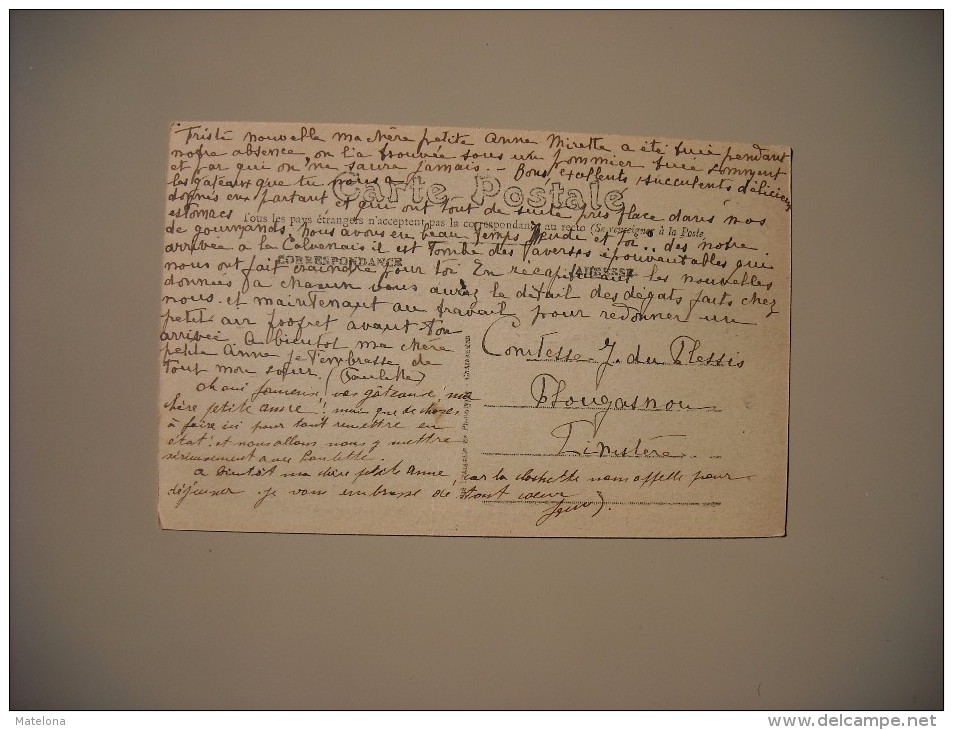 Triste nouvelle ma chère petite Anne Mirette a été tuée pendant
notre absence, on l'a trouvée sous un pommier tuée comment
et par qui on ne saura jamais. - Bons, exellents, succulents, délicieux
les gâteaux que tu nous a
Carte Postale
donnés en partant et qui ont tout de suite pris place dans nos
estomacs
Tous les pays étrangers n'acceptent pas la correspondance au recto (Se renseigner à la Poste)
de gourmands. Nous avons eu beau temps et toi.. dès notre
arrivée à la il est tombé des averses épouvantables qui
CORRESPONDANCE
ADRESSE
nous ont fait craindre pour toi En les nouvelles
données à chacun vous aurez le détail des dégats faits chez
nous. et maintenant au travail pour redonner un
petit air avant ton
arrivée. A bientôt ma chère
petite Anne je t'embrasse de
tout mon cœur. (Paulette)
Comtesse J. du Plessis
Plougasnou
Finistère
Oh oui vos gâteaux, ma
chère petite anne! mais que de choses
à faire ici pour tout remettre en
état! et nous allons nous y mettre
sérieusement avec Paulette.
à bientôt ma chère petite Anne, car la clochette nous appelle pour
déjeuner. je vous embrasse de tout cœur
Matelona
www.delcampe.net